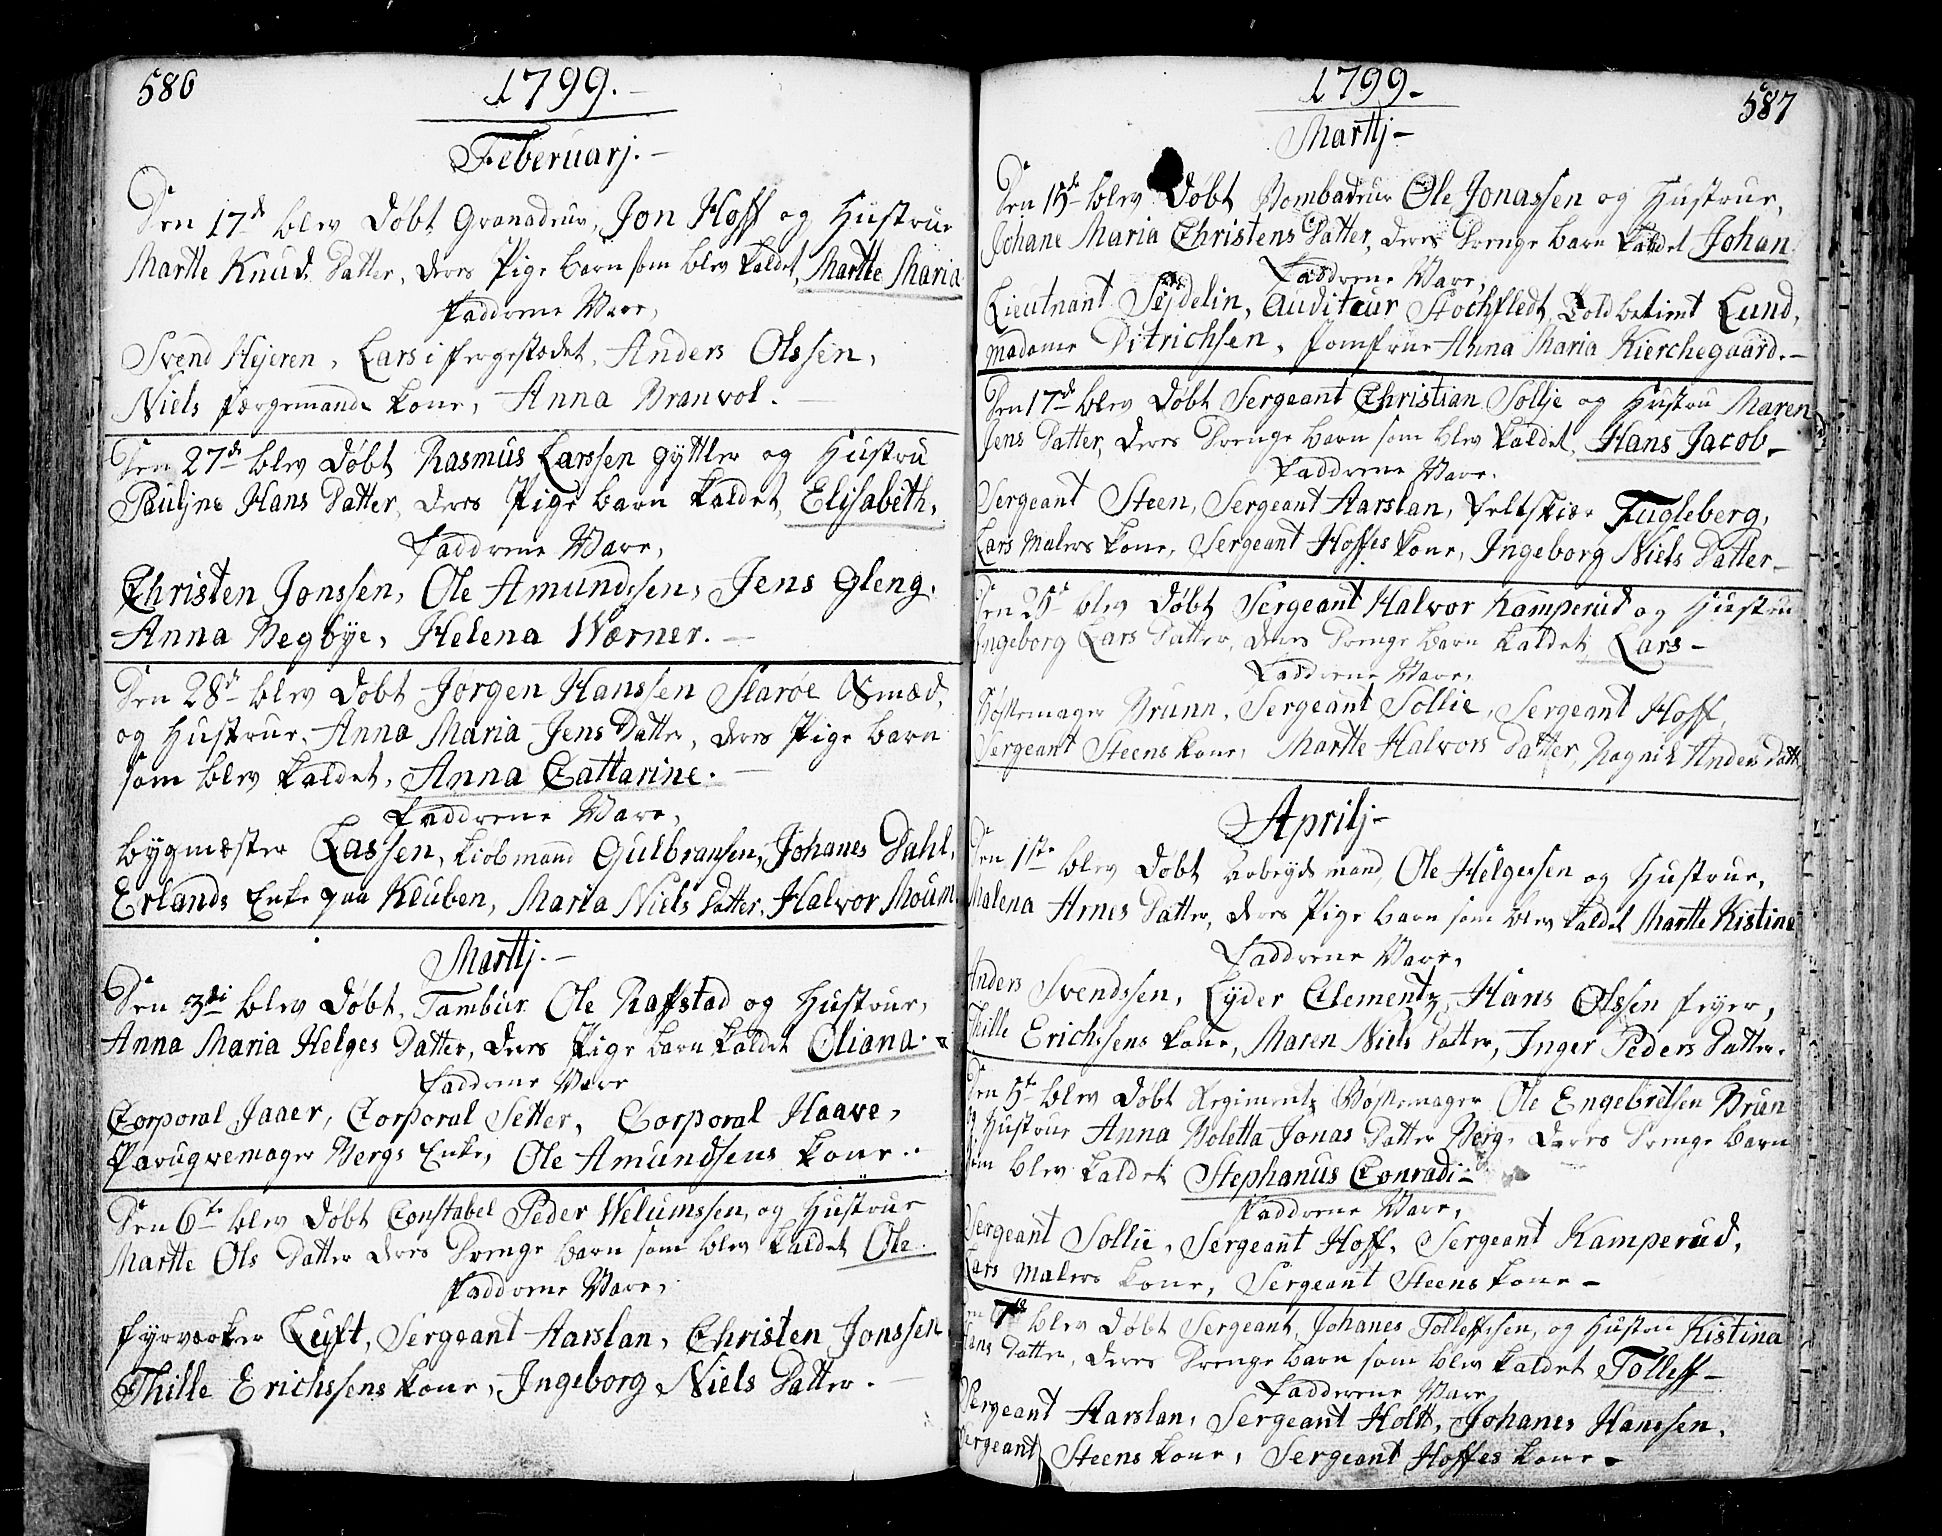 586
1799.
Februarj.
Den 17d blev Døbt Granadeur, Jon Hoff og Hustrue
Martte Knuds Datter, deres Pige barn som blev kaldet, Martte Maria
Faddrene Vare,
Svend Hejeren, Lars i fergestædet, Anders Olssen,
Niels færgemands kone, Anna Branvol.
Den 27d blev Døbt Rasmus Larssen gyttler og Hustru
Pauljne Hans Datter, deres Pige barn kaldet, Elisabeth,
Faddrene Vare,
Christen Jonssen, Ole Amundssen, Jens Gleng.
Anna Begbye, Helena Wærner.
Den 28d blev Døbt Jørgen Hanssen Slarøe Smæd,
og Hustrue, Anna Maria Jens Datter, deres Pige barn
som blev kaldet, Anna Cattarine.
Faddrene Vare,
bygmæster Lassen, kiøbmand Gulbransen, Johanes Dahl,
Erlands Enke paa Kluben, Maria Niels Datter, Halvor Moum
Marttj.
Den 3di blev Døbt, Tambur Ole Raffstad og Hustrue,
Anna Maria Helges Datter, deres Pige barn kaldet Oliana.
Faddrene Vare
Corporal Jaaer, Corporal Setter, Corporal Haave,
Parugvemager Bergs Enke, Ole Amundsens kone.
Den 6te blev Døbt Constabel Peder Welumssen, og Hustrue
Martte Ols Datter deres Drenge barn som blev kaldet Ole.
Faddrene Vare,
fyrværker Luft, Sergeant Aarslan, Christen Jonssen
Thille Erichssens kone, Ingeborg Niels Datter.
1799.
587
Marttj
Den 15de blev Døbt Bombadeur Ole Jonassen og Hustrue,
Johane Maria Christens Datter, deres Drenge barn kaldet Johan.
Faddrene Vare,
Lieutnant Sejdelin, Auditeur Stochfledt, Toldbetient Lund,
Madame Ditrichsen, Jomfrue Anna Maria Kierchegaard.
Den 17d blev Døbt Sergeant Christian Sollje og Hustru Maren
Jens Datter, deres Drenge barn som blev kaldet, Hans Jacob
Faddrene Vare.
Sergeant Steen, Sergeant Aarslan, feltskiær Fugleberg,
Lars Malers kone, Sergeant Hoffes kone, Ingeborg Niels Datter
Den 25d blev Døbt Sergeant Halvor Kamperud og Hustru
Ingeborg Lars Datter, deres Drenge barn kaldet, Lars
Faddrene Vare,
Bøssemager Brunn, Sergeant Sollie, Sergeant Hoff,
Sergeant Steens kone, Martte Halvors Datter, Ragnil Anders Datt
Aprilj
Den 1ste blev Døbt arbeyds mand, Ole Helgessen og Hustrue,
Malena Arnes Datter, deres Pige barn som blev kaldet Martte Kistine
Faddrene Vare,
Anders Svendssen, Lyder Clementz, Hans Olssen feyer,
Thille Erichssens kone, Maren Niels Datter, Inger Peders Datter.
Den 5te blev Døbt Regimentz Bøssemager Ole Engebretsen Brun
og Hustrue Anna Boletta Jonas Datter Berg, deres Drenge barn
som blev kaldet Stephanus Conradi
Faddrene Vare,
Sergeant Sollie, Sergeant Hoff, Sergeant Kamperud,
Lars Malers kone, Sergeant Steens kone
Den 7de blev Døbt Sergeant, Johanes Tolleffssen, og Hustru Kistina
Hans Datter, deres Drenge barn som blev kaldet Tolleff
Fadderene Vare
Sergeant Aarslan, Sergeant Holtt, Johanes Hanssen,
Sergeant Steens kone, Sergeant Hoffes kone